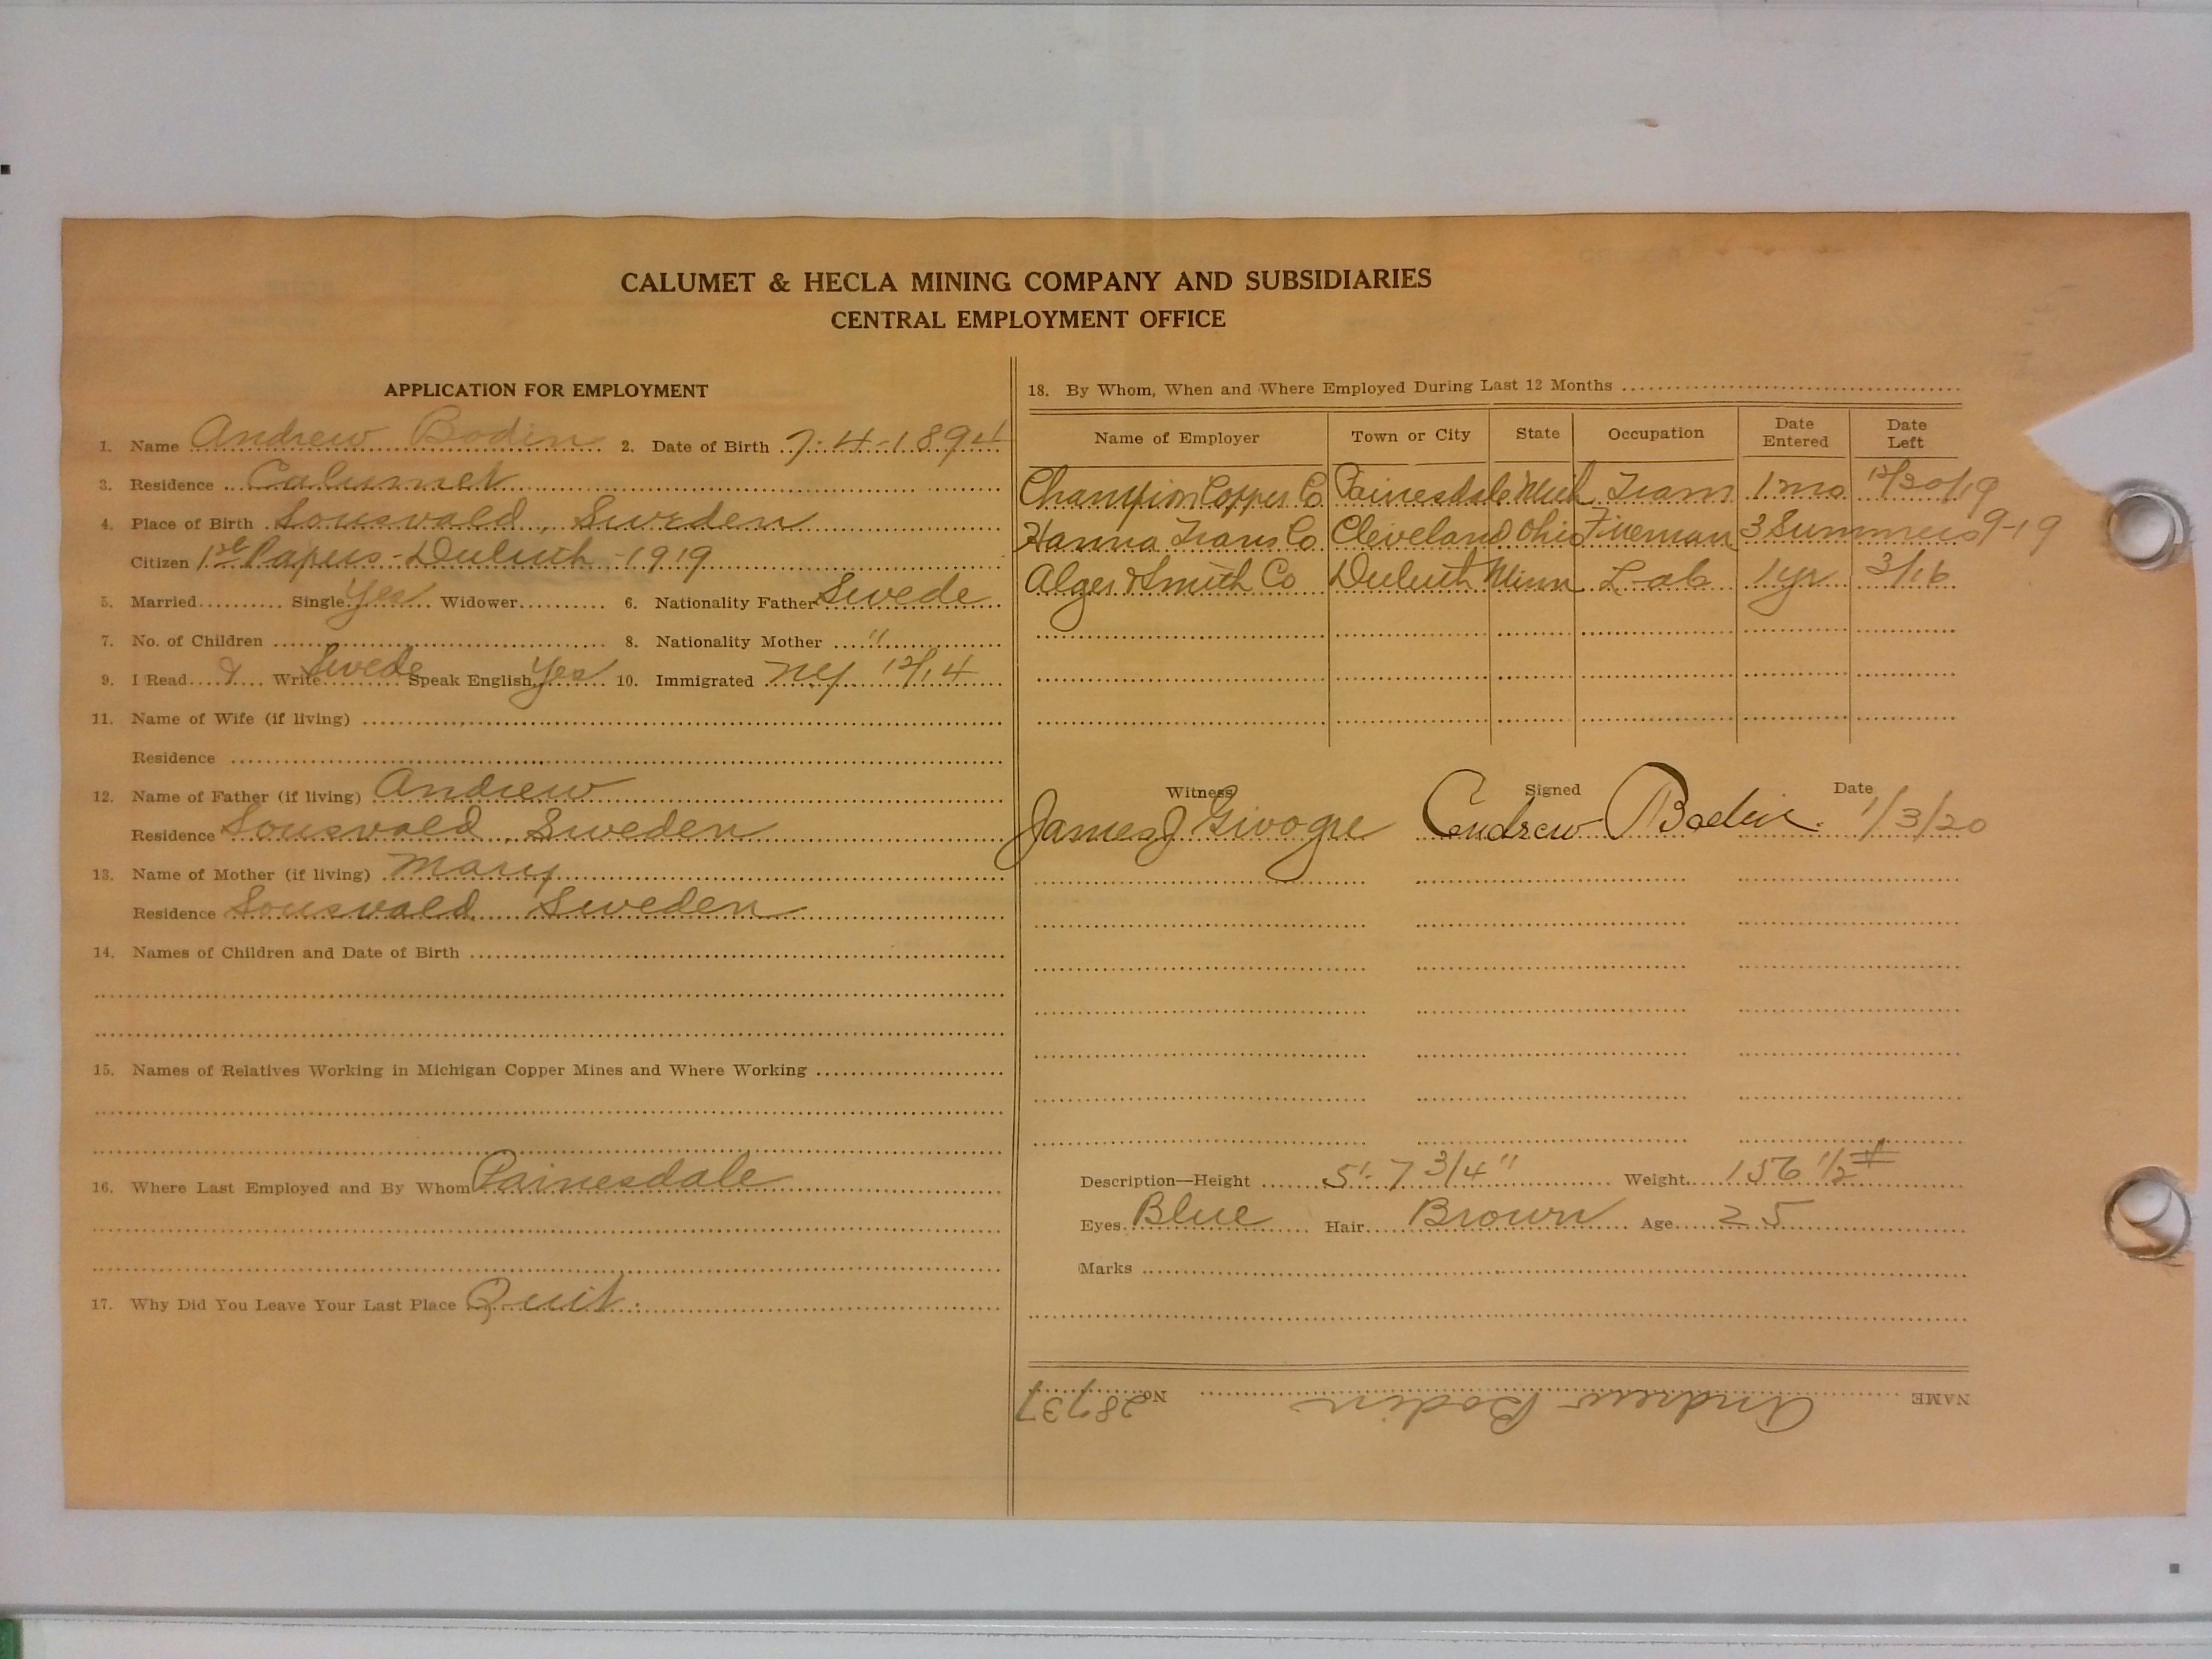 CALUMET & HECLA MINING COMPANY AND SUBSIDIARIES
CENTRAL EMPLOYMENT OFFICE
APPLICATION FOR EMPLOYMENT
1. Name Andrew Bodin 2. Date of Birth 7-4-1894
3. Residence Calumet
4. Place of Birth Sousvald, Sweden
Citizen 1st Papers - Duluth - 1919
5. Married Single Yes Widower 6. Nationality Father Swede
7. No. of Children 8. Nationality Mother "
9. I Read & Write Swede Speak English Yes 10. Immigrated NY 12/14
11. Name of Wife (if living)
Residence
12. Name of Father (if living) Andrew
Residence Sousvald, Sweden
13. Name of Mother (if living) Mary
Residence Sousvald Sweden
14. Names of Children and Date of Birth
15. Names of Relatives Working in Michigan Copper Mines and Where Working
16. Where Last Employed and By Whom Painesdale
17. Why Did You Leave Your Last Place Quit.
18. By Whom, When and Where Employed During Last 12 Months
Name of Employer Town or City State Occupation Date Entered Date Left
Champion Copper Co Painesdale Mich Tram 1 mo 12/20/19
Hanna Trans Co Cleveland Ohio Fireman 3 Summers 9-19
Alger & Smith Co Duluth Minn Lab 1 yr 3/16
Witness Signed Date
James J Givogre Andrew Bodin. 1/3/20
Description—Height 5'-7 3/4" Weight 156 1/2 #
Eyes Blue Hair Brown Age 25
Marks
NAME Andrew Bodin No. 28737